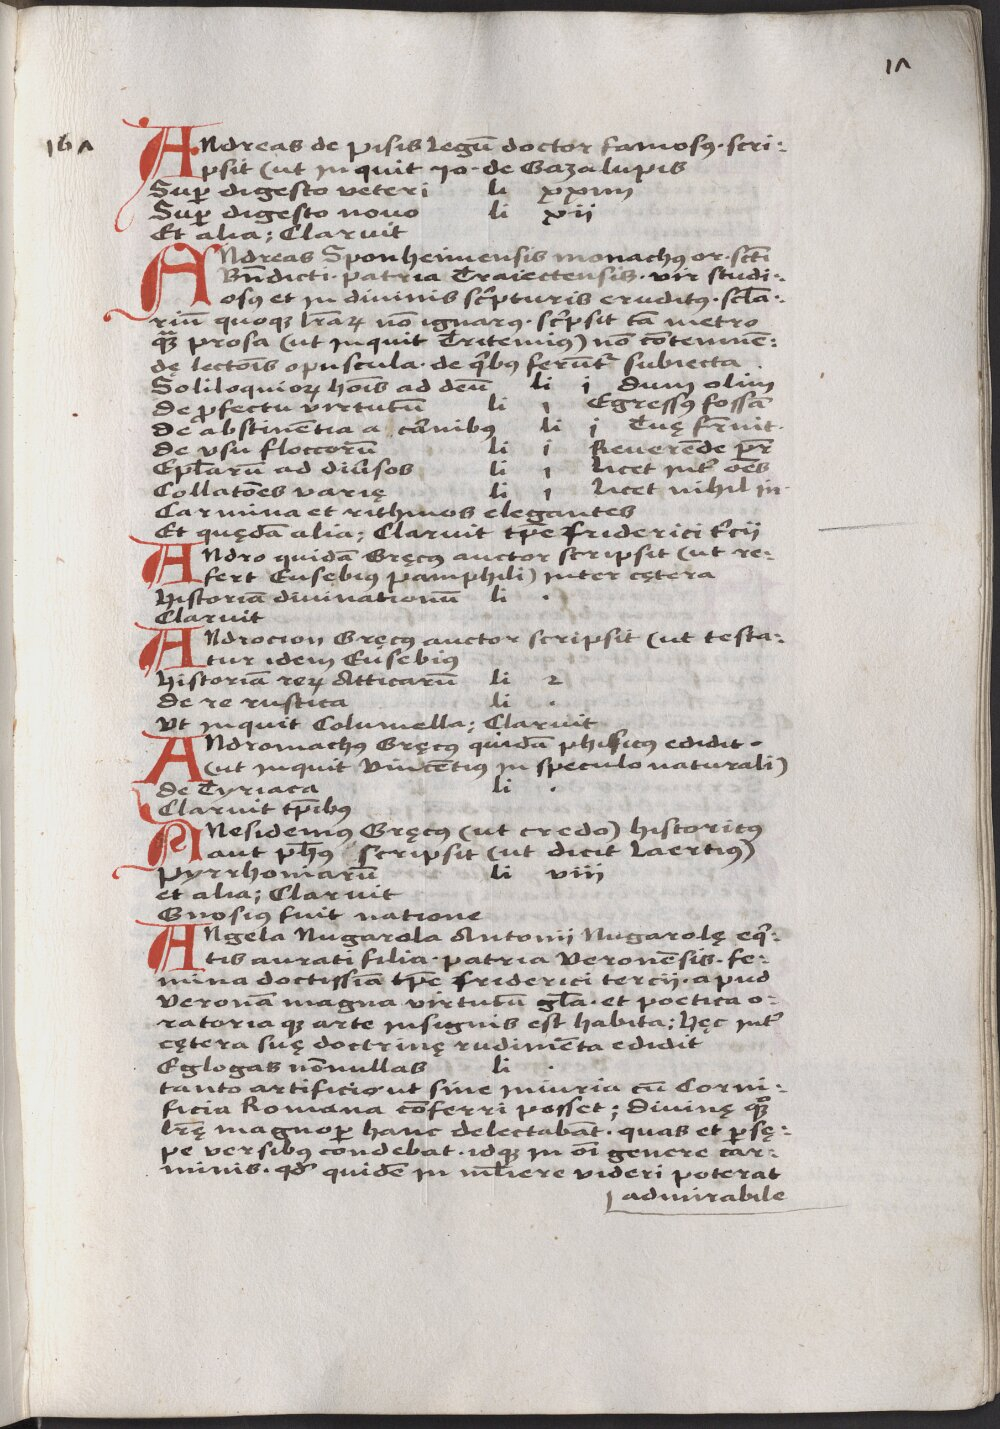 1ʌ
16ʌ
Andreas de pisis legū doctor famosꝰ · scri:
psit (ut inquit Io · de Gazalupis
Suꝑ digesto veteri li xxiiii
Suꝑ digesto nouo li xii
Et alia; Claruit
Andreas Sponheimensis monachꝰ or · scti
Bn̄dicti · patria Traiectensis · vir studi:
osꝰ et in diuinis scͥpturis eruditꝰ · scl̄a:
riū quoqꝫ lr̄aꝝ nō ignarꝰ · scͥpsit tā metro
qͣꝫ prosa (ut inquit Tritemiꝰ) nō cōtemnē:
dę lectōis opuscula · de qͥbꝰ ferūtͬ subiecta
Soliloquioꝝ hoīs ad deū li i dum olim
de ꝓfectu virtutū li i Egressꝰ fossā
de abstinētia a carnibꝰ li i Tuę fr̄nit ·
de vsu floccorū li i Reuerēde pr̄
Epl̄arū ad diūsos li i licet intͬ oēs
Collatōes varię li i licet nihil in ·
Carmina et rithmos elegantes
Et quędā alia; Claruit tp̄e friderici tͬcii
Andro quidā Gręcꝰ auctor scripsit (ut re:
fert Eusebiꝰ pamphili) inter cętera
historiā diuinationū li ·
Claruit
Androcion Gręcꝰ auctor scripsit (ut testa:
tur idem Eusebiꝰ
historiā reꝝ Atticarū li 2
de re rustica li ·
Vt inquit Columella; Claruit
Andromachꝰ Gręcꝰ quidā phisicꝰ edidit ·
(ut inquit Vincētiꝰ in speculo naturali)
de Tyriaca li ·
Claruit tp̄ibꝰ
Anesidemꝰ Gręcꝰ (ut credo) historicꝰ
aut ph̄ꝰ scripsit (ut dicit Laertiꝰ)
pyrrhoniarū li viii
et alia; Claruit
Gnosiꝰ fuit natione
Angela Nugarola Antonii Nugarolę eqͥ:
tis aurati filia · patria Veronēsis · fe:
mina doctissīa tp̄e friderici tercii · apud
Veronā magna virtutū gl̄a · et poetica o:
ratoria qꝫ arte insignis est habita; hęc intͬ
cętera suę doctrinę rudimēta edidit
Eglogas nōnullas li ·
tanto artificio ut sine iniuria cū Corni:
ficia Romana cōferri posset; diuinę qͣꝫ
lr̄ę magnoꝑ hanc delectabāt · quas et ꝑsę:
pe versibꝰ condebat · idqꝫ in oī genere car:
minis · qd̄ quidē in ml̄iere videri poterat
admirabile